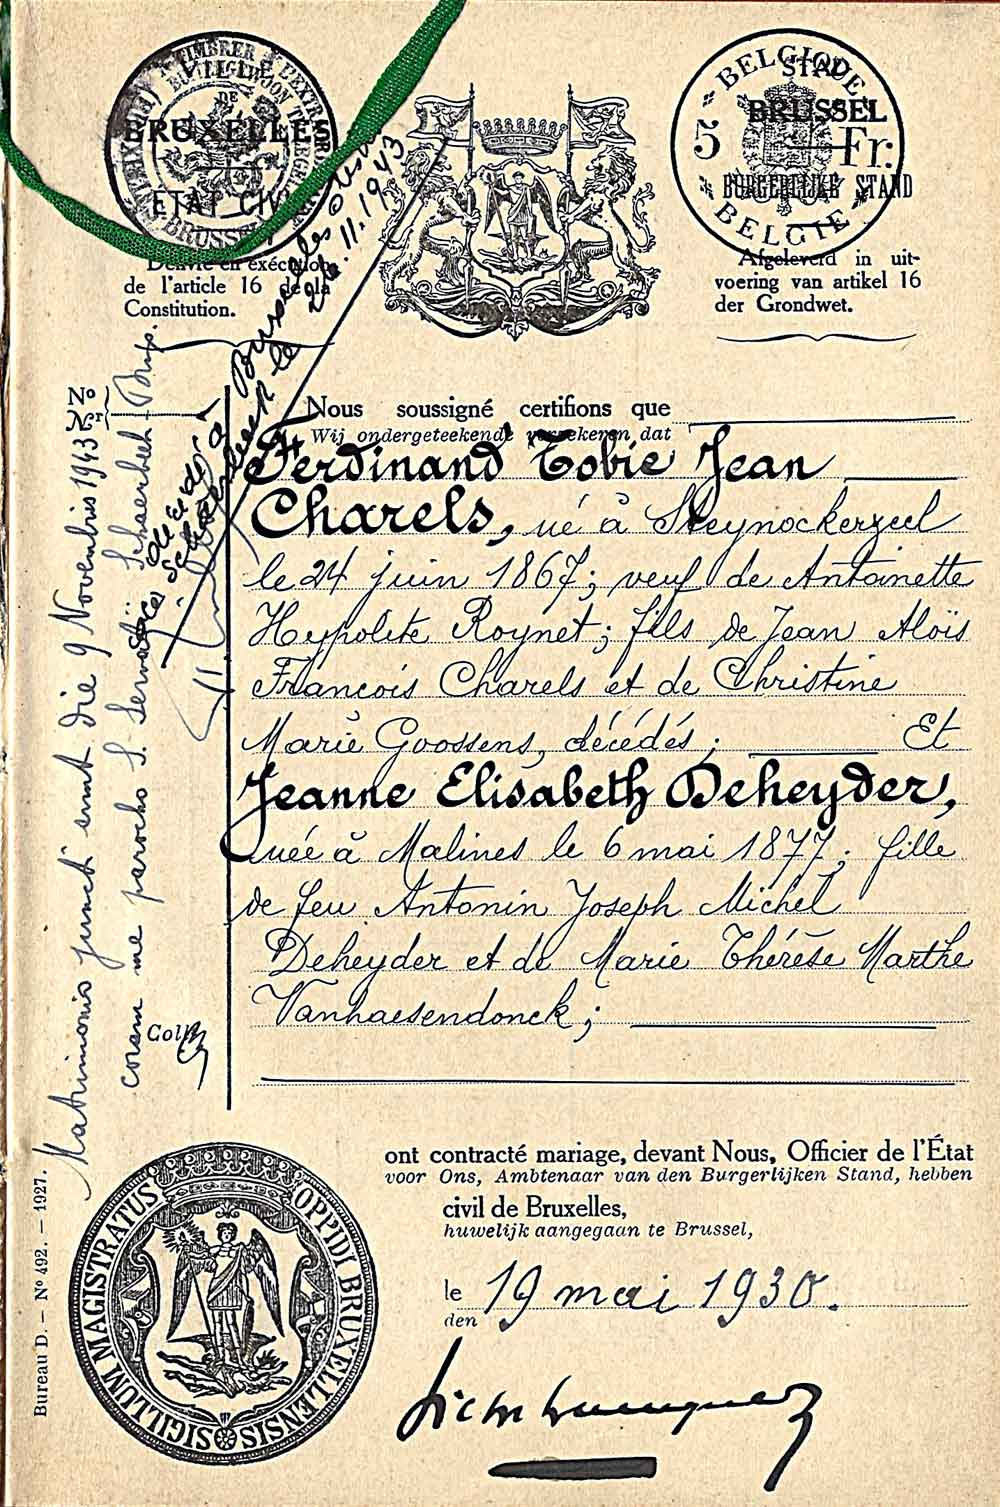 VILLE
DE
BRUXELLES
ÉTAT CIVIL
BELGIQUE
5 Fr.
BELGIË
STAD
BRUSSEL
BURGERLIJKE STAND
Délivré en exécution
de l'article 16 de la
Constitution.
Afgeleverd in uit-
voering van artikel 16
der Grondwet.
No
Nr
Nous soussigné certifions que
Wij ondergeteekende verzekeren dat
Ferdinand Tobie Jean
Charels, né à Steynockerzeel
le 24 juin 1867; veuf de Antoinette
Hypolite Roynet; fils de Jean Aloïs
François Charels et de Christine
Marie Goossens, décédés; Et
Jeanne Elisabeth Deheyder,
née à Malines le 6 mai 1877; fille
de feu Antonin Joseph Michel
Deheyder et de Marie Thérèse Marthe
Vanhaesendonck;
Coll
ont contracté mariage, devant Nous, Officier de l'État
voor Ons, Ambtenaar van den Burgerlijken Stand, hebben
civil de Bruxelles,
huwelijk aangegaan te Brussel,
le 19 mai 1930.
den
SIGILLUM MAGISTRATUS OPPIDI BRUXELLENSIS
Bureau D. — No 492. — 1927.
Matrimonio juncti sunt die 9 Novembris 1943
coram me parocho S. Servatii Schaerbeek-Brux.
Décédé à
Schaerbeek le
26.11.1943